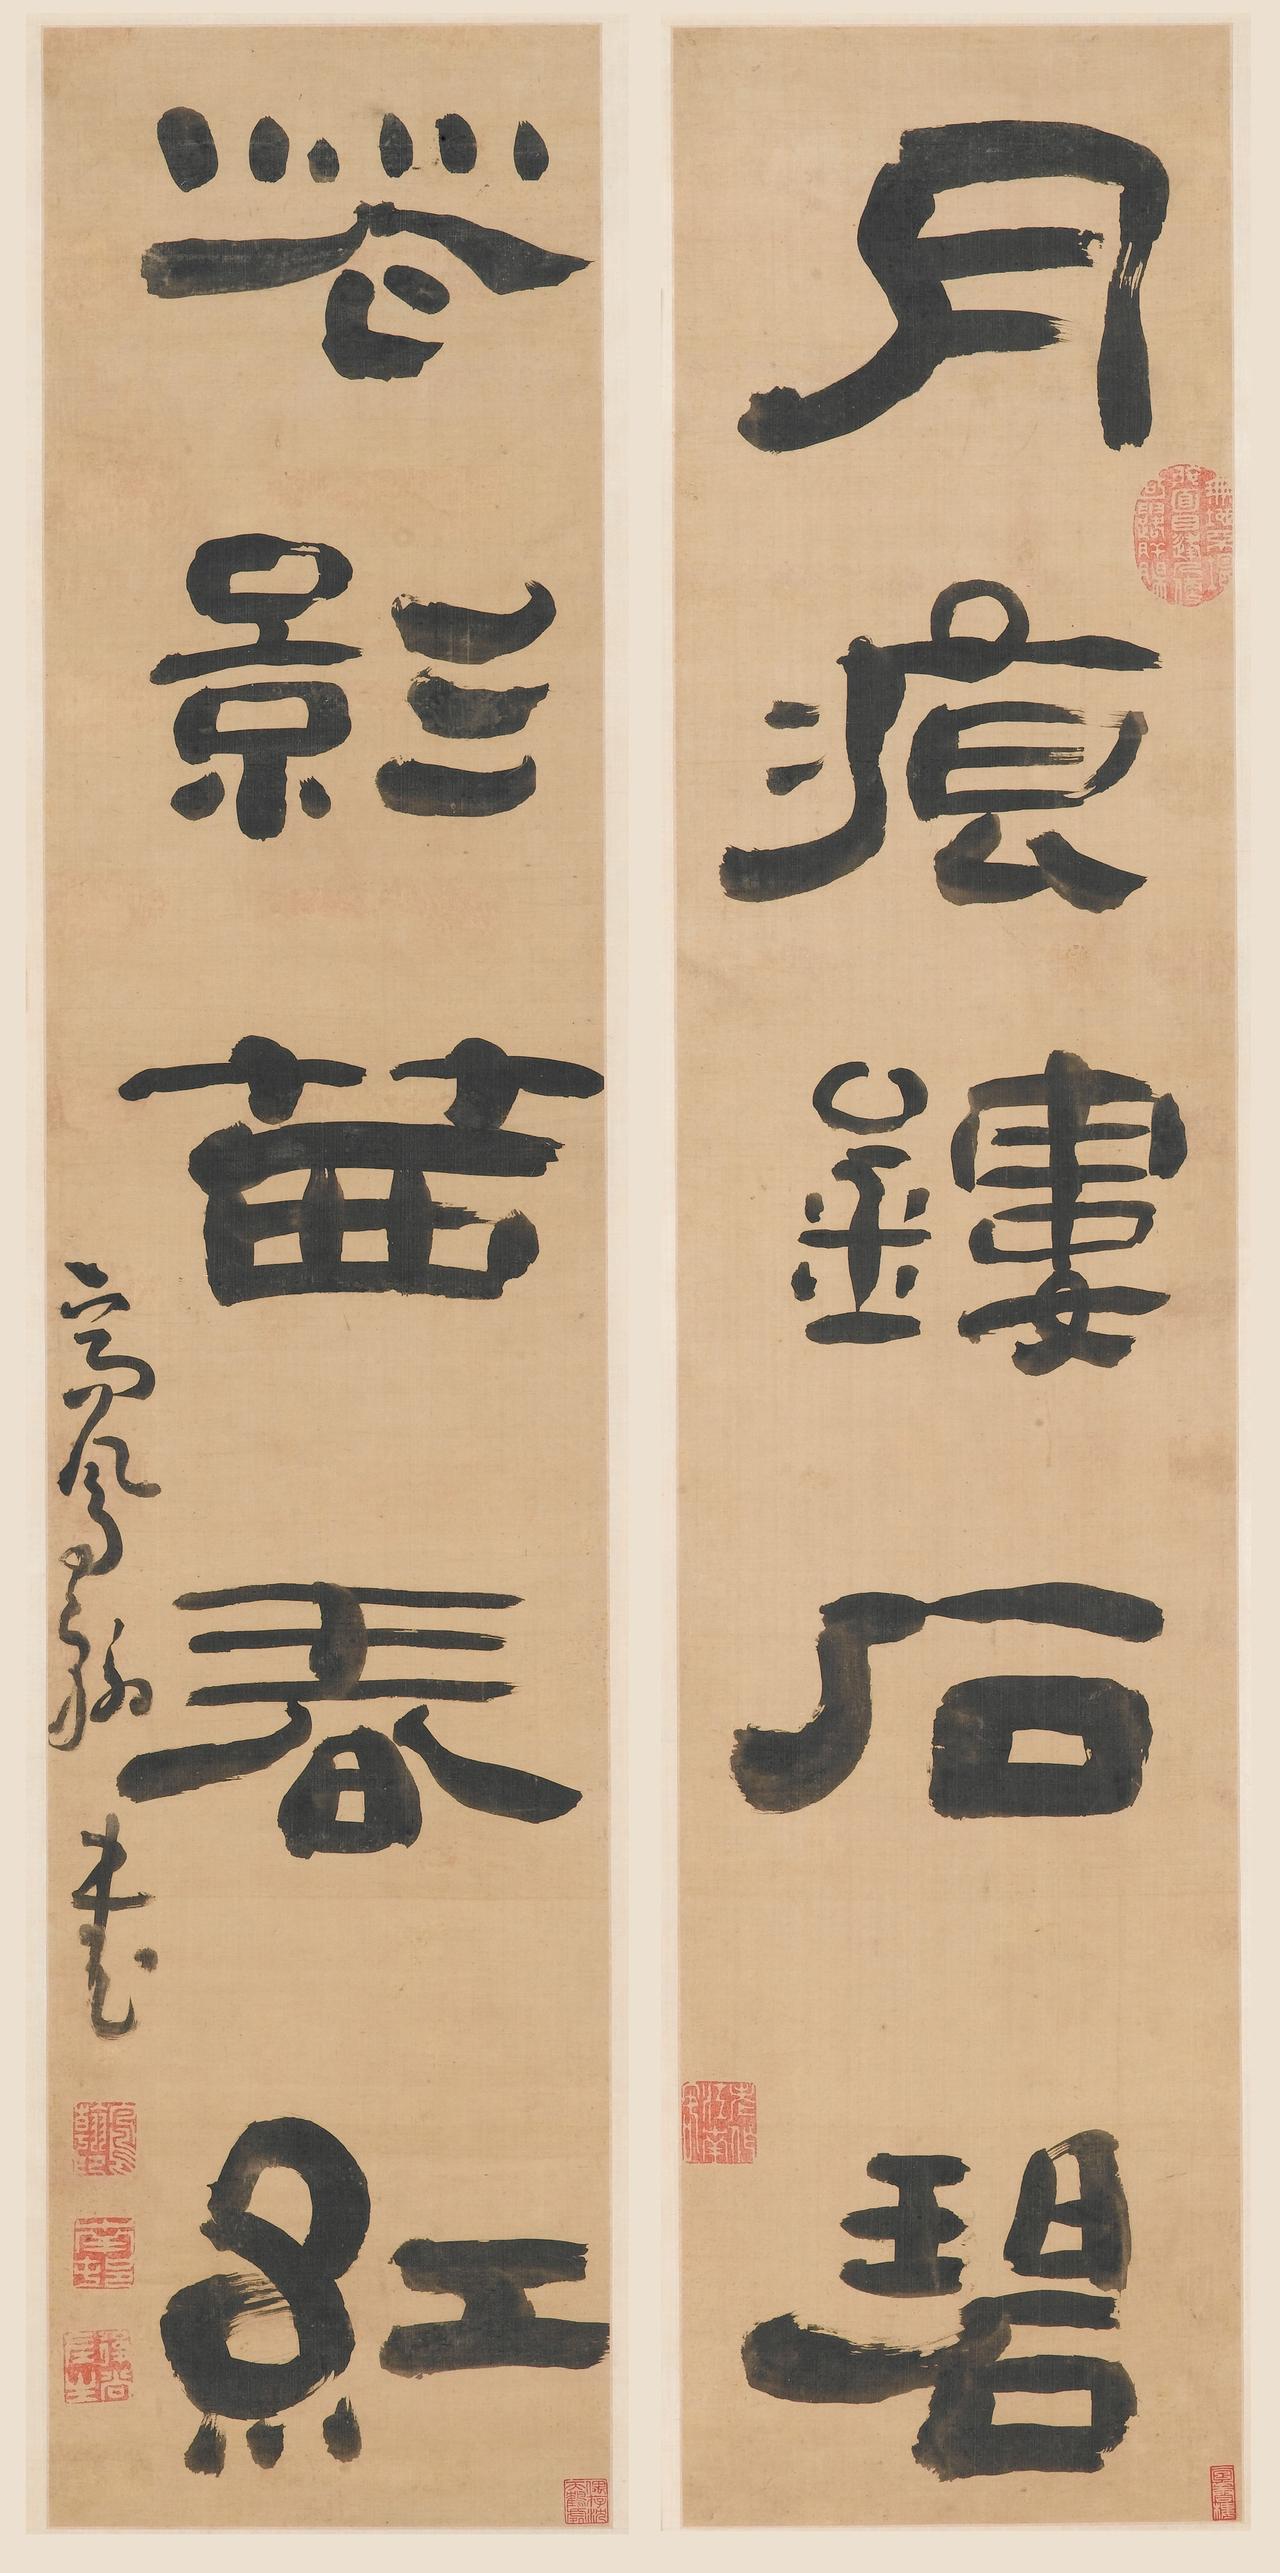 月痕鏤石碧
花影茜春紅
高鳳翰書